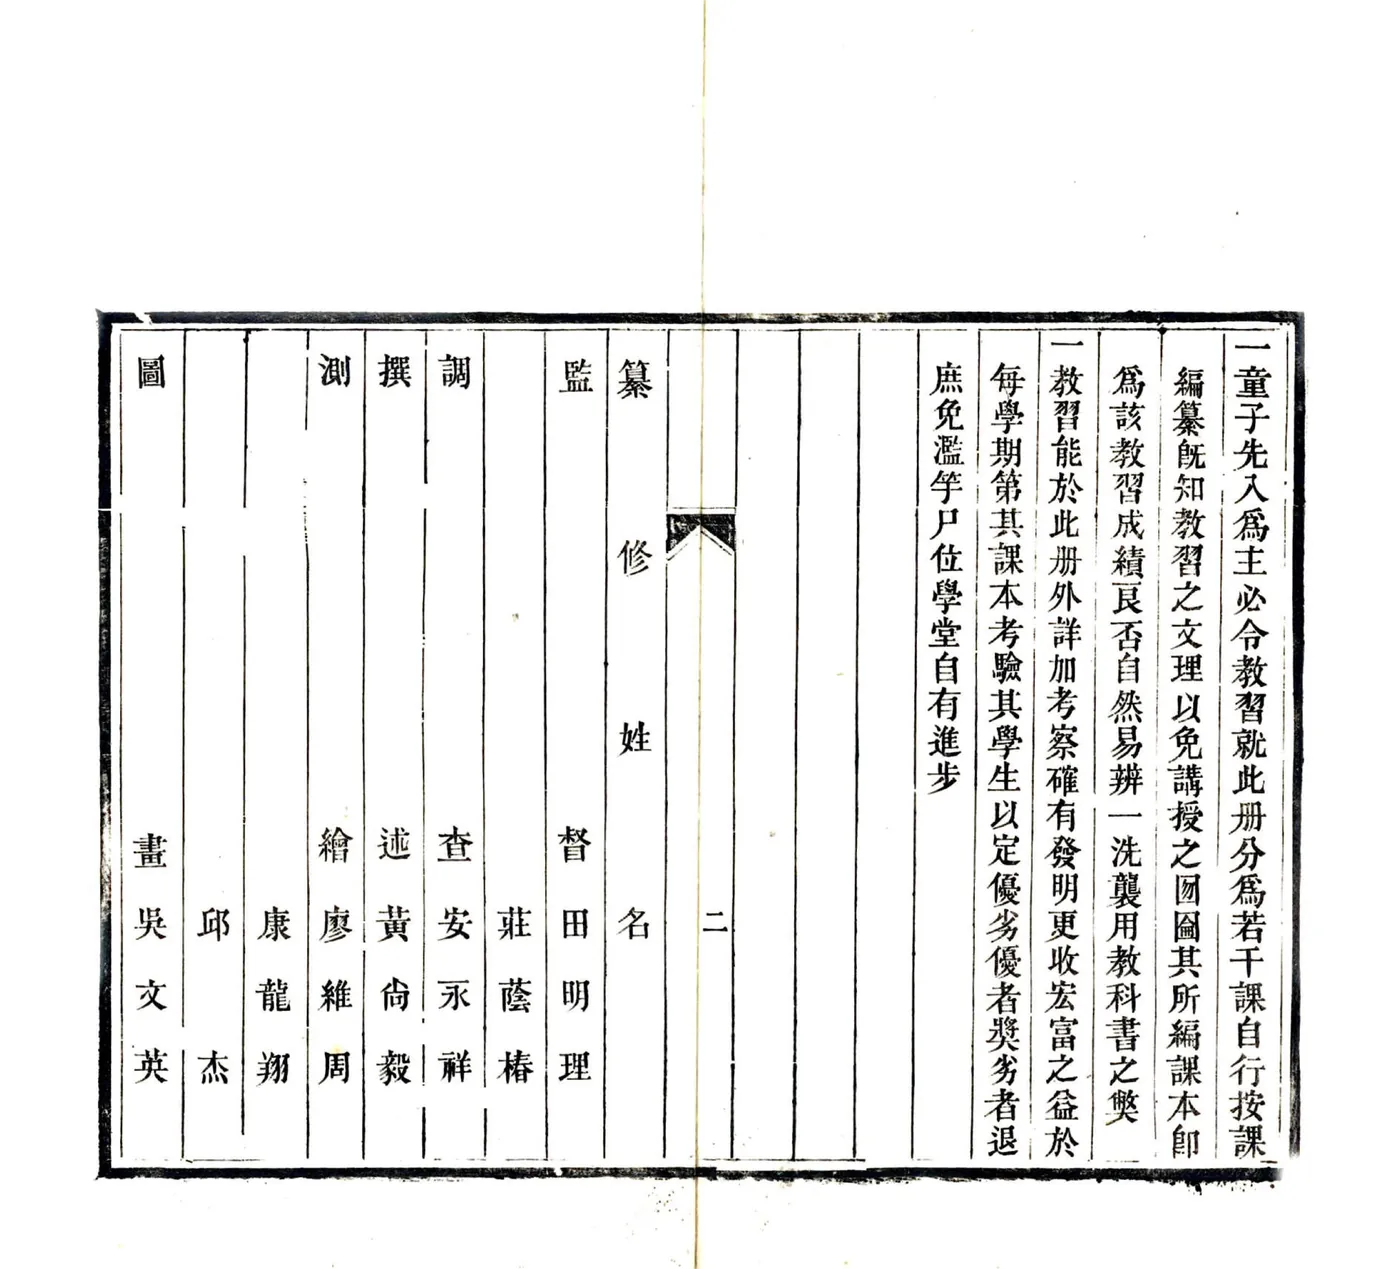 一童子先入爲主必令教習就此册分爲若干課自行按課
編纂既知教習之文理以免講授之囫圇其所編課本卽
爲該教習成績良否自然易辨一洗襲用教科書之弊
一教習能於此册外詳加考察確有發明更收宏富之益於
每學期第其課本考驗其學生以定優劣優者獎劣者退
庶免濫竽尸位學堂自有進步
二
纂修姓名
監督田明理
莊蔭椿
調查安永祥
撰述黃尙毅
測繪廖維周
康龍翔
邱杰
圖畫吳文英